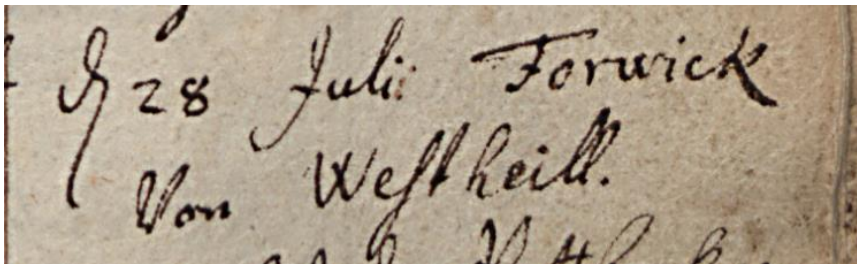 d 28 Juli Forwick
Von Westheill.